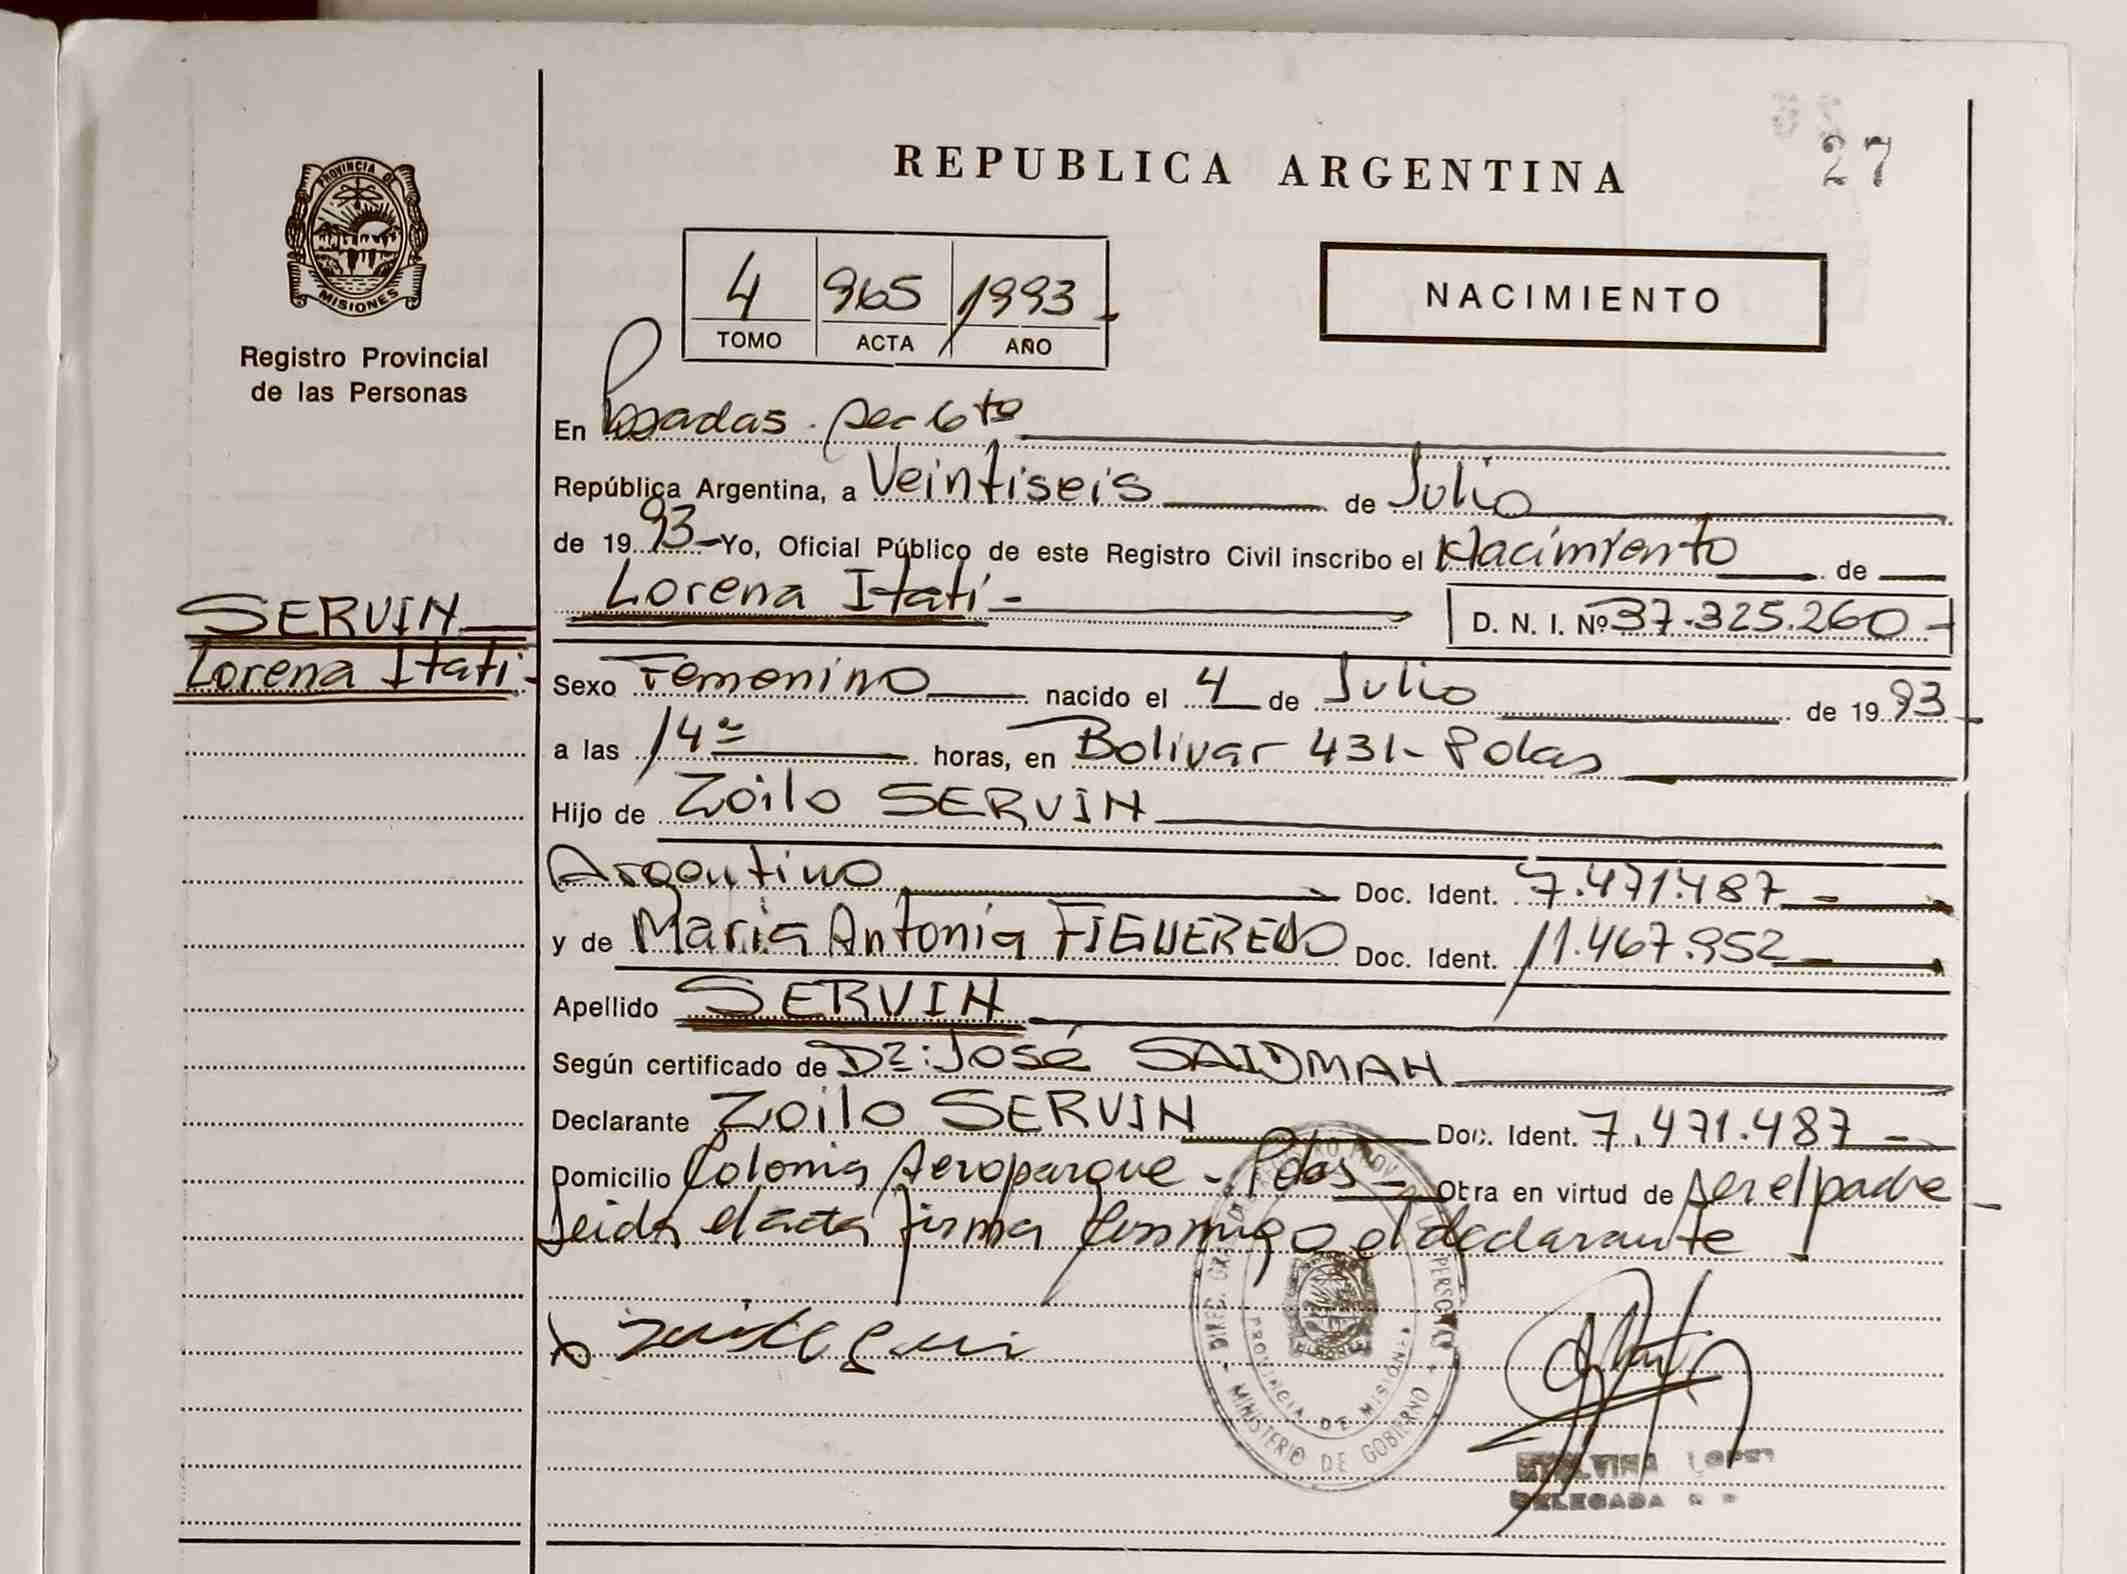 REPUBLICA ARGENTINA
27
PROVINCIA DE
MISIONES
Registro Provincial
de las Personas
4 965 1993
TOMO ACTA AÑO
NACIMIENTO
En Posadas. sec 6ta
República Argentina, a Veintiseis de Julio
de 1993 Yo, Oficial Público de este Registro Civil inscribo el Nacimiento de
Lorena Itatí - D. N. I. Nº 37.325.260 -
SERVIN
Lorena Itatí -
Sexo Femenino nacido el 4 de Julio de 1993
a las 14 horas, en Bolivar 431 - Pdas
Hijo de Zoilo SERVIN
Argentino Doc. Ident. 7.471.487 -
y de Maria Antonia FIGUEREDO Doc. Ident. 11.467.952
Apellido SERVIN
Según certificado de Dr: José SAIDMAN
Declarante Zoilo SERVIN Doc. Ident. 7.471.487 -
Domicilio Colonia Aeroparque - Pdas - Otra en virtud de ser el padre
Leida el acta firma conmigo el declarante
PROVINCIA DE MISIONES
MINISTERIO DE GOBIERNO
LOPEZ
DELEGADA